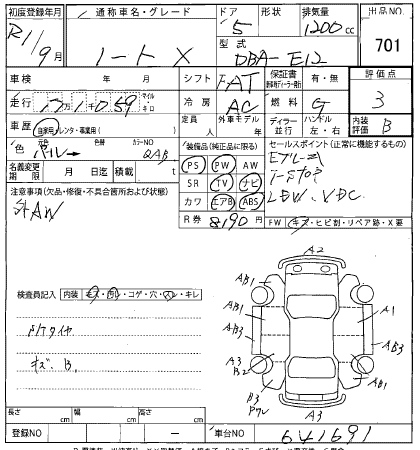 初度登録年月 通称車名・グレード ドア 形状 排気量 出品NO
R1/9月 ノートX 5 1200cc 701
型式 DBA-E12
車検 年 月 シフト FAT 保証書 有・無 評価点
走行 マイル・キロ 冷房 AC 燃料 G 3
車歴 自家用・レンタ・事業用( ) 定員 人 外車モデル 年 ディーラー・並行 ハンドル 左・右 内装評価 B
色 色替 カラーNO QAB 装備品(純正品に限る) セールスポイント(正常に機能するもの)
名義変更期限 月 日迄 積載 t PS PW AW
注意事項(欠品・修復・不具合箇所および状態) SR TV ナビ
社AW カワ エアB ABS LDW、VDC
R券 8190円 FW キズ・ヒビ割・リペア跡・X要
A2
検査員記入 内装 キズ・汚レ・コゲ・穴・スレ・キレ AB1 AB1
AB1 A1
AB3 AB3
A3 B2
キズ.B. AB1
B3
A3
長さ cm 幅 cm 高さ cm
登録NO ー 車台NO 641691